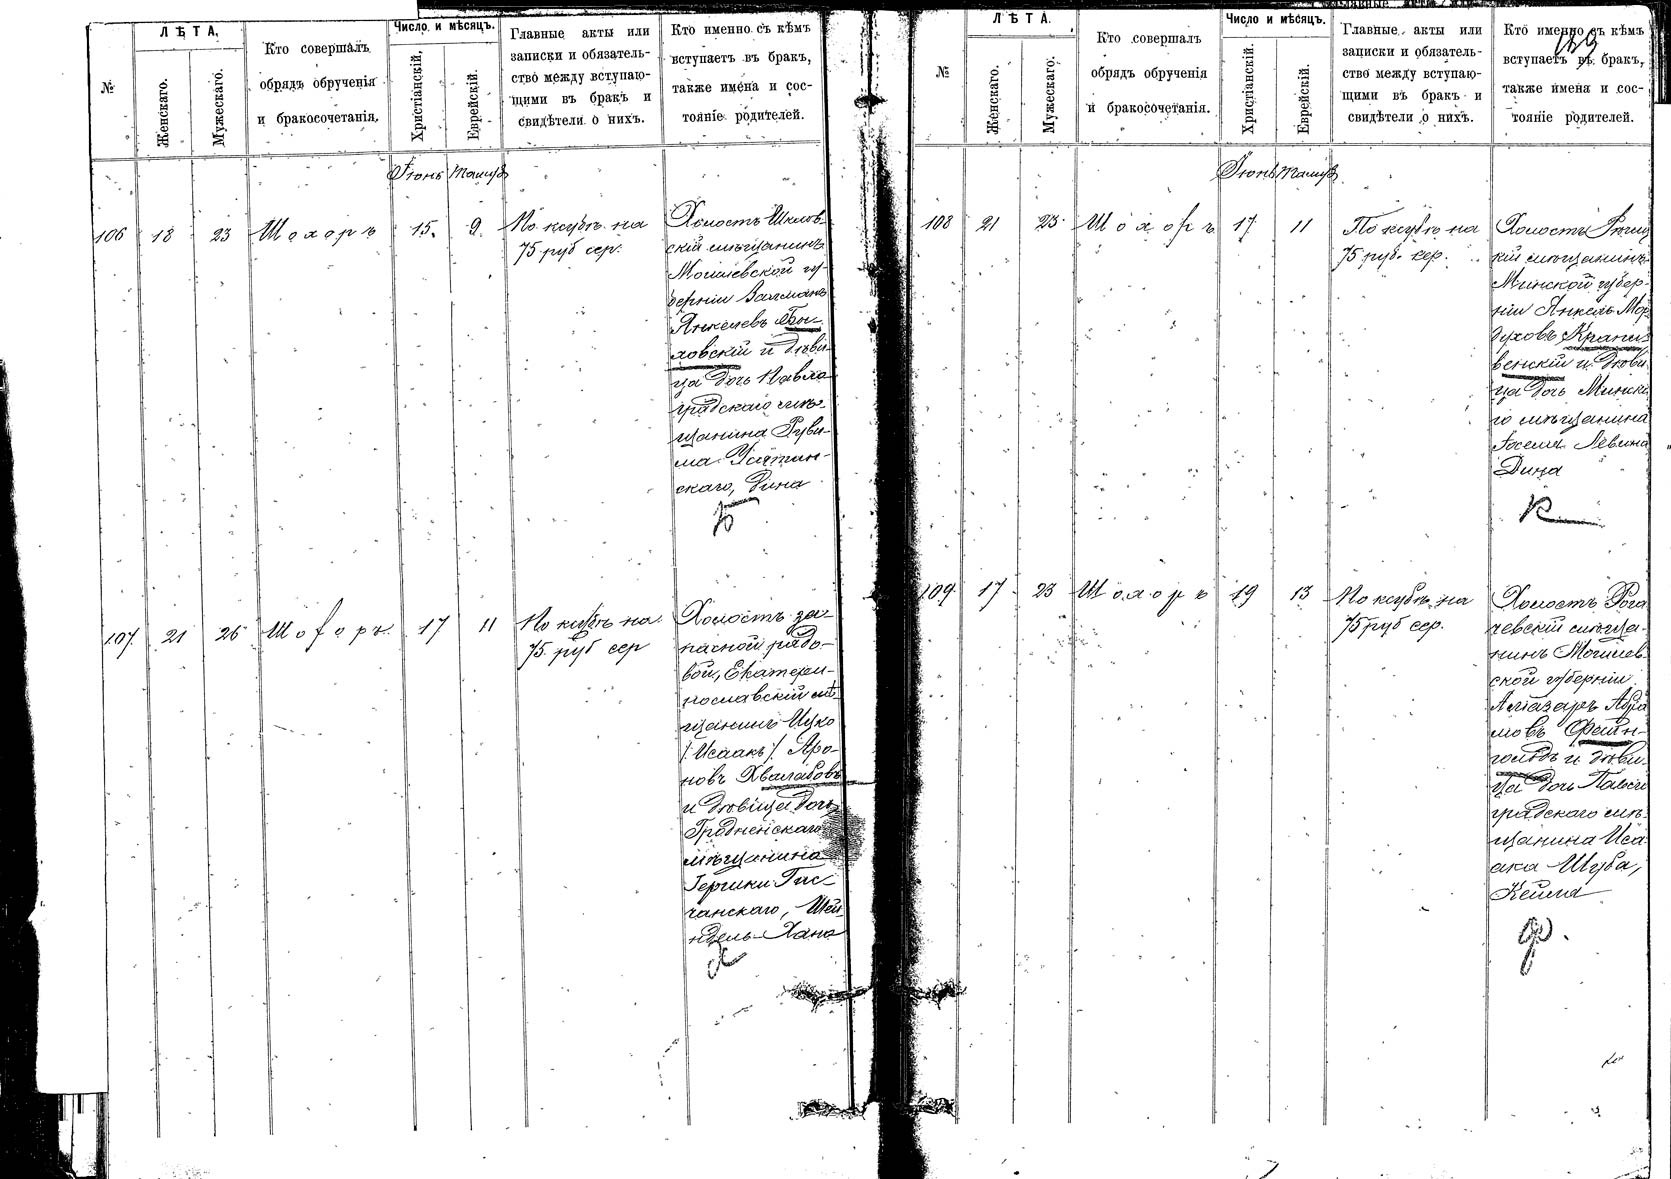 №
ЛѢТА.
Женскаго.
Мужескаго.
Кто совершалъ
обрядъ обрученія
и бракосочетанія.
Число и мѣсяцъ.
Христіанскій.
Еврейскій.
Главные акты или
записки и обязатель-
ство между вступаю-
щими въ бракъ и
свидѣтели о нихъ.
Кто именно съ кѣмъ
вступаетъ въ бракъ,
также имена и сос-
тояніе родителей.
Іюнь Тамузъ
106 18 23 Шохоръ 15. 9.
По ксубѣ на
75 руб сер.
Холостъ Шклов-
скій мѣщанинъ
Могилевской гу-
берніи Залманъ
Янкелевъ Бы-
ховскій и дѣви-
ца дочь Павло-
градскаго мѣ-
щанина Руви-
ма
скаго, Дина
Б
107. 21 26 Шохоръ 17 11
По ксубѣ на
75 руб сер
Холостъ за-
пасной рядо-
вой, Екатери-
нославскій мѣ-
щанинъ Ицко
/Исаакъ/ Аро-
новъ Хвалабовъ
и дѣвица дочь
Гродненскаго
мѣщанина
Гершки
чанскаго, Шей-
ндель-Хана
Х
№
ЛѢТА.
Женскаго.
Мужескаго.
Кто совершалъ
обрядъ обрученія
и бракосочетанія.
Число и мѣсяцъ.
Христіанскій.
Еврейскій.
Главные акты или
записки и обязатель-
ство между вступаю-
щими въ бракъ и
свидѣтели о нихъ.
Кто именно съ кѣмъ
вступаетъ въ бракъ,
также имена и сос-
тояніе родителей.
Іюнь Тамузъ
108 21 23 Шохоръ 17 11
По ксубѣ на
75 руб. сер.
Холостъ Рѣчиц
кій мѣщанинъ
Минской губер-
ніи Янкель Мор
духовъ Крапи
венскій и дѣви
ца дочь Минска
го мѣщанина
Іоселя Левина
Дина
К
109. 17 23 Шохоръ 19 13
По ксубѣ на
75 руб сер.
Холостъ Рога
чевскій мѣща-
нинъ Могилев-
ской губерніи
Алтазаръ Абра
мовъ Фейн-
гольдъ и дѣви-
ца дочь Павло
градскаго мѣ-
щанина Иса-
ака Шуба,
Кейла
Ф.